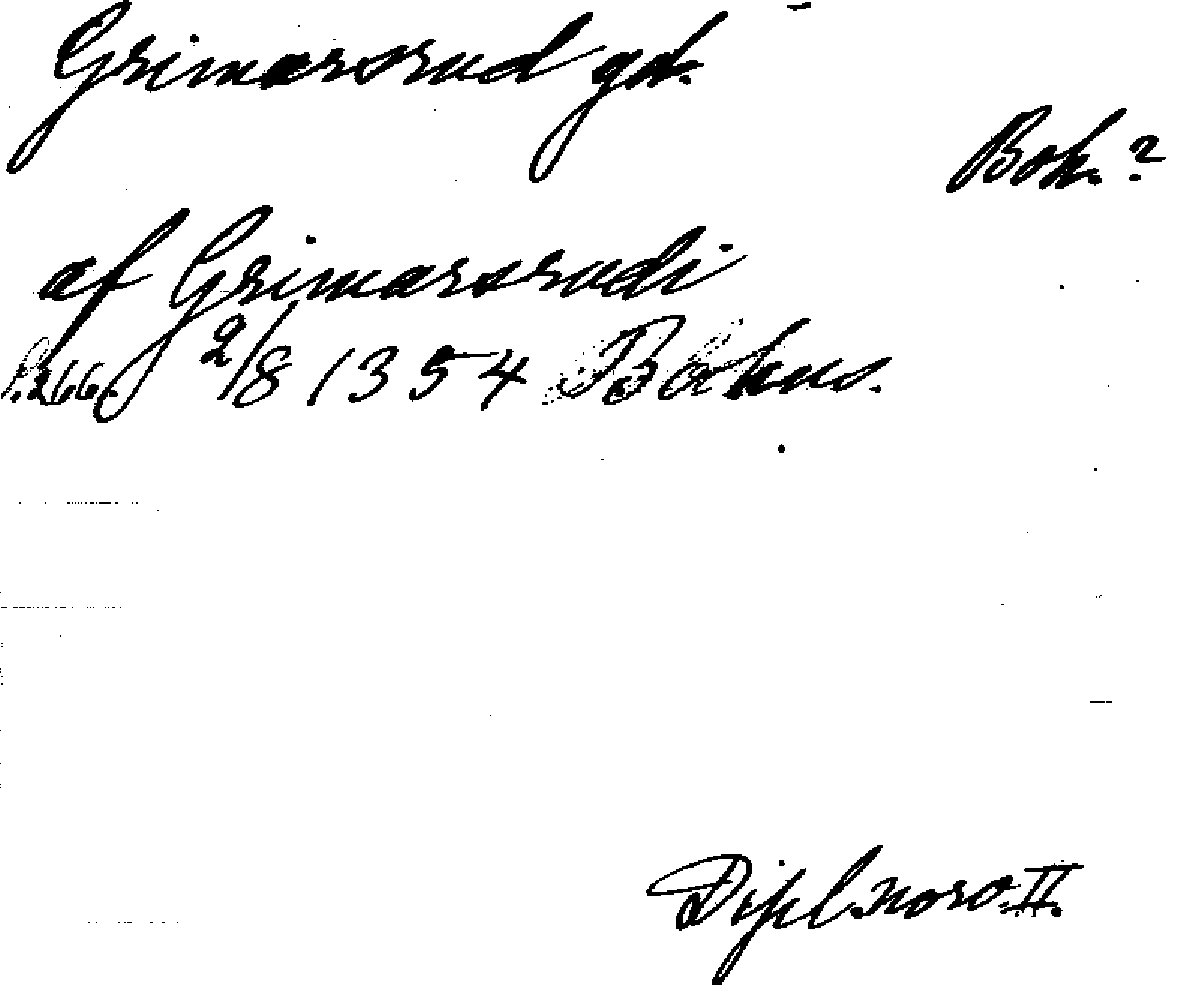 Grimarsrud gd.
Boh.?
af Grimarsrudi
s.266. 2/8 1354 Bohus.
Dipl. norv. II.